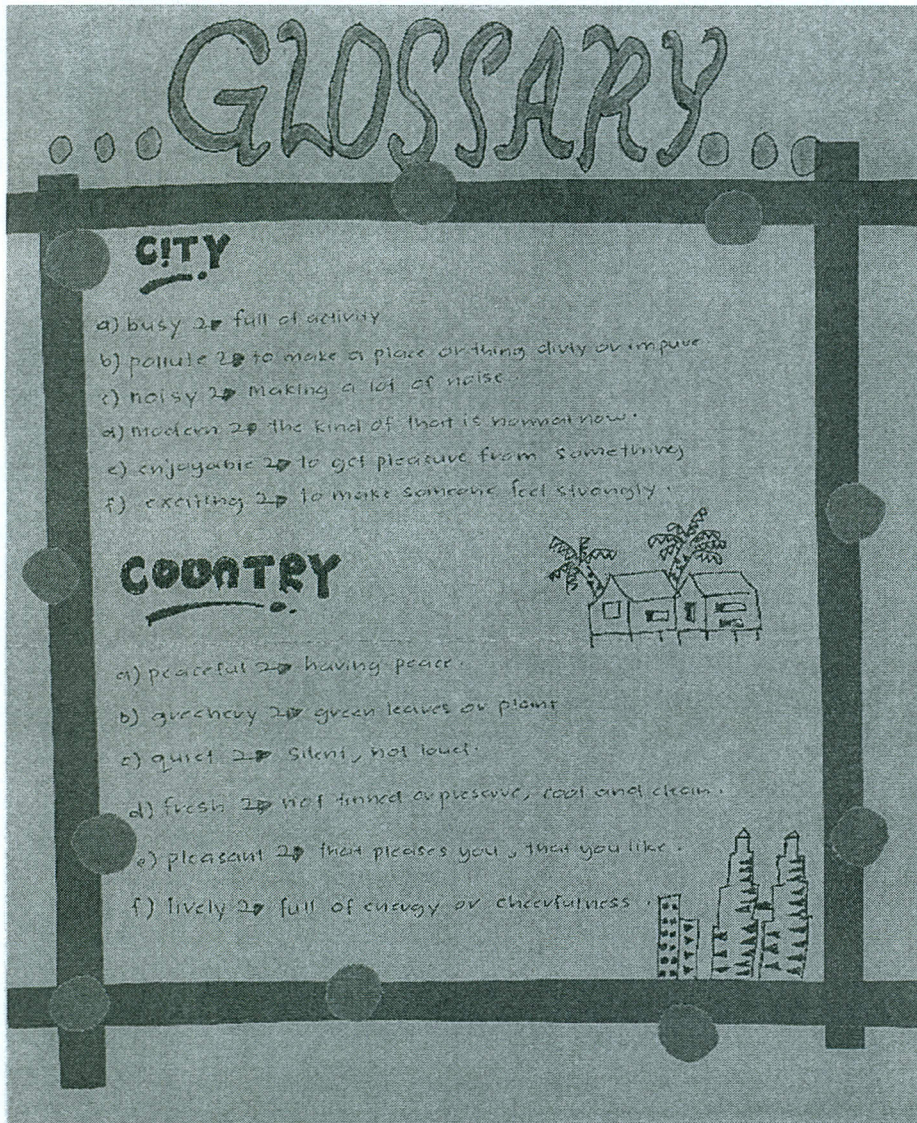 ...GLOSSARY...
CITY
a) busy → full of activity
b) pollute → to make a place or thing dirty or impure
c) noisy → making a lot of noise.
d) modern → the kind of that is normal now.
e) enjoyable → to get pleasure from something
f) exciting → to make someone feel strongly.
COUNTRY
a) peaceful → having peace.
b) greenery → green leaves or plant
c) quiet → silent, not loud.
d) fresh → not tinned or preserve, cool and clean.
e) pleasant → that pleases you, that you like.
f) lively → full of energy or cheerfulness.